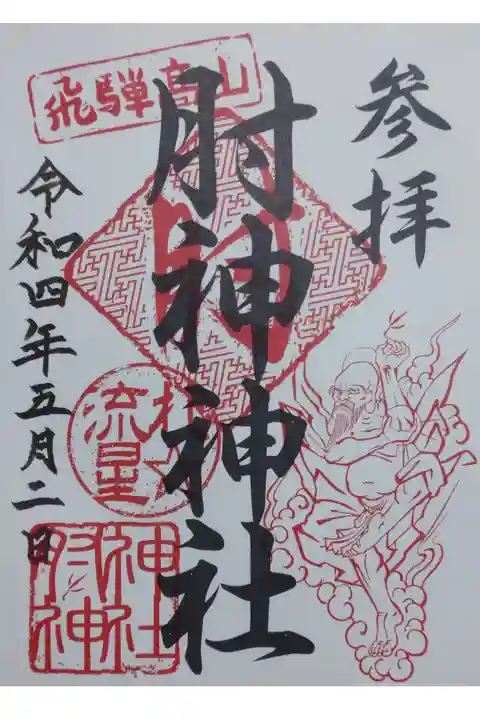 参拝
肘神神社
飛騨高山
流星
肘神
神社
令和四年五月二日